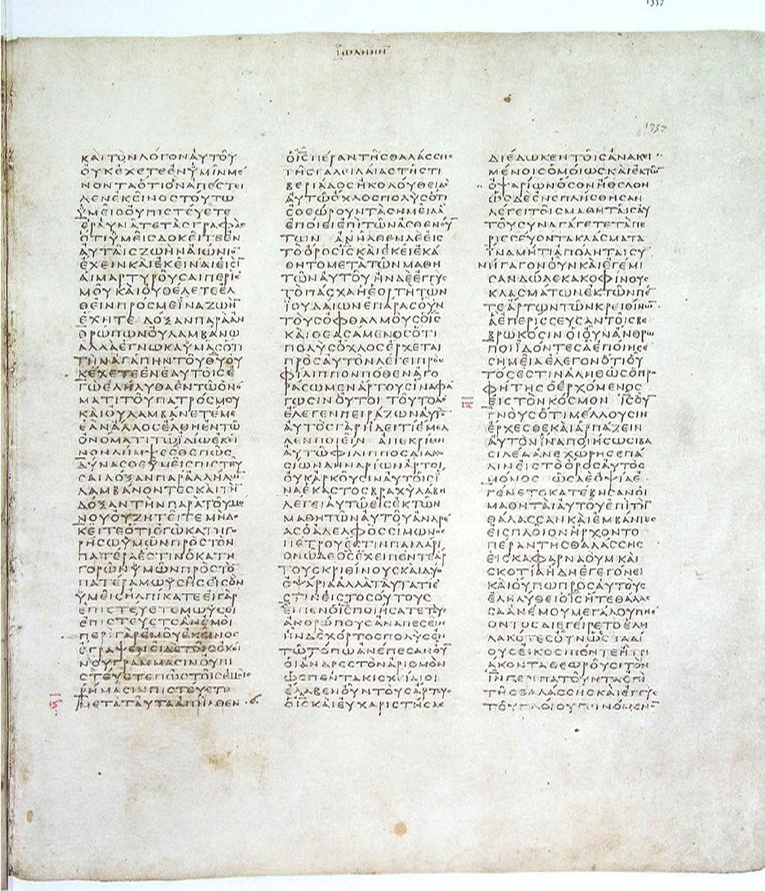 ΙΩΑΝΗΝ
1357
ΚΑΙΤΟΝΛΟΓΟΝΑΥΤΟΥ
ΟΥΚΕΧΕΤΕΕΝΥΜΙΝΜΕ
ΝΟΝΤΑΟΤΙΟΝΑΠΕϹΤΕΙ
ΛΕΝΕΚΕΙΝΟϹΤΟΥΤΩ
ΥΜΕΙϹΟΥΠΙϹΤΕΥΕΤΕ
ΕΡΑΥΝΑΤΕΤΑϹΓΡΑΦΑϹ
ΟΤΙΥΜΕΙϹΔΟΚΕΙΤΕΕΝ
ΑΥΤΑΙϹΖΩΗΝΑΙΩΝΙΟ
ΕΧΕΙΝΚΑΙΕΚΕΙΝΑΙΕΙϹΙ
ΑΙΜΑΡΤΥΡΟΥϹΑΙΠΕΡΙΕ
ΜΟΥΚΑΙΟΥΘΕΛΕΤΕΕΛ
ΘΕΙΝΠΡΟϹΜΕΙΝΑΖΩΗ
ΕΧΗΤΕ ΔΟΞΑΝΠΑΡΑΑΝ
ΘΡΩΠΩΝΟΥΛΑΜΒΑΝΩ
ΑΛΛΑΕΓΝΩΚΑΥΜΑϹΟΤΙ
ΤΗΝΑΓΑΠΗΝΤΟΥΘΥΟΥ
ΚΕΧΕΤΕΕΝΕΑΥΤΟΙϹΕ
ΓΩΕΛΗΛΥΘΑΕΝΤΩΟΝΟ
ΜΑΤΙΤΟΥΠΑΤΡΟϹΜΟΥ
ΚΑΙΟΥΛΑΜΒΑΝΕΤΕΜΕ
ΕΑΝΑΛΛΟϹΕΛΘΗΕΝΤΩ
ΟΝΟΜΑΤΙΤΩΙΔΙΩΕΚΕΙ
ΝΟΝΛΗΜΨΕϹΘΕΠΩϹ
ΔΥΝΑϹΘΕΥΜΕΙϹΠΙϹΤΕΥ
ϹΑΙΔΟΞΑΝΠΑΡΑΛΛΗΛΩ
ΛΑΜΒΑΝΟΝΤΕϹΚΑΙΤΗ
ΔΟΞΑΝΤΗΝΠΑΡΑΤΟΥΜΟ
ΝΟΥΟΥΖΗΤΕΙΤΕΜΗΔΟ
ΚΕΙΤΕΟΤΙΕΓΩΚΑΤΗΓΟ
ΡΗϹΩΥΜΩΝΠΡΟϹΤΟΝ
ΠΑΤΕΡΑΕϹΤΙΝΟΚΑΤΗ
ΓΟΡΩΝΥΜΩΝΠΡΟϹΤΟ
ΠΑΤΕΡΑΜΩΥϹΗϹΕΙϹΟΝ
ΥΜΕΙϹΗΛΠΙΚΑΤΕΕΙΓΑΡ
ΕΠΙϹΤΕΥΕΤΕΜΩΥϹΕΙ
ΕΠΙϹΤΕΥΕΤΕΑΝΕΜΟΙ
ΠΕΡΙΓΑΡΕΜΟΥΕΚΕΙΝΟϹ
ΕΓΡΑΨΕΝΕΙΔΕΤΟΙϹΕΚΕΙ
ΝΟΥΓΡΑΜΜΑϹΙΝΟΥΠΙ
ϹΤΕΥΕΤΕΠΩϹΤΟΙϹΕΜΟΙϹ
ΡΗΜΑϹΙΝΠΙϹΤΕΥΕΤΕ
ΜΕΤΑΤΑΥΤΑΑΠΗΛΘΕΝ
ΟΙϹΠΕΡΑΝΤΗϹΘΑΛΑϹϹΗϹ
ΤΗϹΓΑΛΕΙΛΑΙΑϹΤΗϹΤΙ
ΒΕΡΙΑΔΟϹΗΚΟΛΟΥΘΕΙΔΕ
ΑΥΤΩΟΧΛΟϹΠΟΛΥϹΟΤΙ
ΕΘΕΩΡΟΥΝΤΑϹΗΜΕΙΑΑ
ΕΠΟΙΕΙΕΠΙΤΩΝΑϹΘΕΝΟΥ
ΤΩΝ ΑΝΗΛΘΕΝΔΕΕΙϹ
ΤΟΟΡΟϹΙϹΚΑΙΕΚΕΙΕΚΑ
ΘΗΤΟΜΕΤΑΤΩΝΜΑΘΗ
ΤΩΝΑΥΤΟΥΗΝΔΕΕΓΓΥϹ
ΤΟΠΑϹΧΑΗΕΟΡΤΗΤΩΝ
ΙΟΥΔΑΙΩΝΕΠΑΡΑϹΟΥΝ
ΤΟΥϹΟΦΘΑΛΜΟΥϹΟΙϹ
ΚΑΙΘΕΑϹΑΜΕΝΟϹΟΤΙ
ΠΟΛΥϹΟΧΛΟϹΕΡΧΕΤΑΙ
ΠΡΟϹΑΥΤΟΝΛΕΓΕΙΠΡΟϹ
ΦΙΛΙΠΠΟΝΠΟΘΕΝΑΓΟ
ΡΑϹΩΜΕΝΑΡΤΟΥϹΙΝΑΦΑ
ΓΩϹΙΝΟΥΤΟΙ ΤΟΥΤΟΔΕ
ΕΛΕΓΕΝΠΕΙΡΑΖΩΝΑΥΤΟ
ΑΥΤΟϹΓΑΡΗΔΕΙΤΙΕΜΕΛ
ΛΕΝΠΟΙΕΙΝ ΑΠΕΚΡΙΘΗ
ΑΥΤΩΦΙΛΙΠΠΟϹΔΙΑΚΟ
ϹΙΩΝΔΗΝΑΡΙΩΝΑΡΤΟΙ
ΟΥΚΑΡΚΟΥϹΙΝΑΥΤΟΙϹΙ
ΝΑΕΚΑϹΤΟϹΒΡΑΧΥΛΑΒΗ
ΛΕΓΕΙΑΥΤΩΕΙϹΕΚΤΩΝ
ΜΑΘΗΤΩΝΑΥΤΟΥΑΝΔΡΕ
ΑϹΟΑΔΕΛΦΟϹϹΙΜΩΝΟϹ
ΠΕΤΡΟΥΕϹΤΙΝΠΑΙΔΑΡΙ
ΟΝΩΔΕΟϹΕΧΕΙΠΕΝΤΕΑΡ
ΤΟΥϹΚΡΙΘΙΝΟΥϹΚΑΙΔΥΟ
ΟΨΑΡΙΑΑΛΛΑΤΑΥΤΑΤΙΕ
ϹΤΙΝΕΙϹΤΟϹΟΥΤΟΥϹ
ΕΙΠΕΝΟΙϹΠΟΙΗϹΑΤΕΤΟΥϹ
ΑΝΘΡΩΠΟΥϹΑΝΑΠΕϹΕΙΝ
ΗΝΔΕΧΟΡΤΟϹΠΟΛΥϹΕΝ
ΤΩΤΟΠΩΑΝΕΠΕϹΑΝΟΥ
ΟΙΑΝΔΡΕϹΤΟΝΑΡΙΘΜΟΝ
ΩϹΠΕΝΤΑΚΙϹΧΙΛΙΟΙ
ΕΛΑΒΕΝΟΥΝΤΟΥϹΑΡΤΟΥϹ
ΟΙϹΚΑΙΕΥΧΑΡΙϹΤΗϹΑϹ
ΔΙΕΔΩΚΕΝΤΟΙϹΑΝΑΚΕΙ
ΜΕΝΟΙϹΟΜΟΙΩϹΚΑΙΕΚΤΩ
ΟΨΑΡΙΩΝΟϹΟΝΗΘΕΛΟΝ
ΩϹΔΕΕΝΕΠΛΗϹΘΗϹΑΝ
ΛΕΓΕΙΤΟΙϹΜΑΘΗΤΑΙϹΑΥ
ΤΟΥϹΥΝΑΓΑΓΕΤΕΤΑΠΕ
ΡΙϹϹΕΥΟΝΤΑΚΛΑϹΜΑΤΑ
ΙΝΑΜΗΤΙΑΠΟΛΗΤΑΙϹΥ
ΝΗΓΑΓΟΝΟΥΝΚΑΙΕΓΕΜΙ
ϹΑΝΔΩΔΕΚΑΚΟΦΙΝΟΥϹ
ΚΛΑϹΜΑΤΩΝΕΚΤΩΝΠΕ
ΤΕΑΡΤΩΝΤΩΝΚΡΙΘΙΝΩ
ΑΕΠΕΡΙϹϹΕΥϹΑΝΤΟΙϹΒΕ
ΒΡΩΚΟϹΙΝΟΙΟΥΝΑΝΘΡΩ
ΠΟΙΙΔΟΝΤΕϹΑΕΠΟΙΗϹΕ
ϹΗΜΕΙΑΕΛΕΓΟΝΟΤΙΟΥ
ΤΟϹΕϹΤΙΝΑΛΗΘΩϹΟΠΡΟ
ΦΗΤΗϹΟΕΡΧΟΜΕΝΟϹ
ΕΙϹΤΟΝΚΟϹΜΟΝ ΙϹΟΥ
ΓΝΟΥϹΟΤΙΜΕΛΛΟΥϹΙΝ
ΕΡΧΕϹΘΕΚΑΙΑΡΠΑΖΕΙΝ
ΑΥΤΟΝΙΝΑΠΟΙΗϹΩϹΙΒΑ
ϹΙΛΕΑΑΝΕΧΩΡΗϹΕΠΑ
ΛΙΝΕΙϹΤΟΟΡΟϹΑΥΤΟϹ
ΜΟΝΟϹ ΩϹΔΕΟΨΙΑΕ
ΓΕΝΕΤΟΚΑΤΕΒΗϹΑΝΟΙ
ΜΑΘΗΤΑΙΑΥΤΟΥΕΠΙΤΗ
ΘΑΛΑϹϹΑΝΚΑΙΕΜΒΑΝΤΕϹ
ΕΙϹΠΛΟΙΟΝΗΡΧΟΝΤΟ
ΠΕΡΑΝΤΗϹΘΑΛΑϹϹΗϹ
ΕΙϹΚΑΦΑΡΝΑΟΥΜΚΑΙ
ϹΚΟΤΙΑΗΔΗΕΓΕΓΟΝΕΙ
ΚΑΙΟΥΠΩΠΡΟϹΑΥΤΟΥϹ
ΕΛΗΛΥΘΕΙΟΙϹΗΤΕΘΑΛΑϹ
ϹΑΑΝΕΜΟΥΜΕΓΑΛΟΥΠΝΕ
ΟΝΤΟϹΔΙΕΓΕΙΡΕΤΟΕΛΗ
ΛΑΚΟΤΕϹΟΥΝΩϹϹΤΑΔΙ
ΟΥϹΕΙΚΟϹΙΠΕΝΤΕΗΤΡΙ
ΑΚΟΝΤΑΘΕΩΡΟΥϹΙΤΟΝ
ΙΝΠΕΡΙΠΑΤΟΥΝΤΑΕΠΙ
ΤΗϹΘΑΛΑϹϹΗϹΚΑΙΕΓΓΥϹ
ΤΟΥΠΛΟΙΟΥΓΕΙΝΟΜΕΝΟ